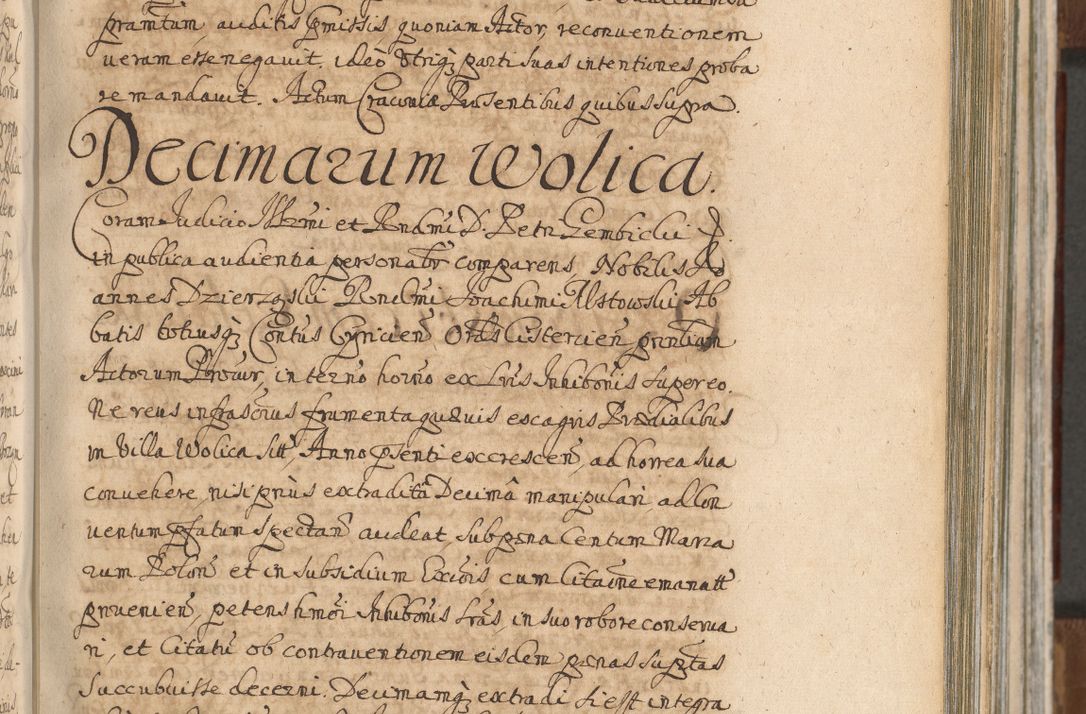 pramtum, auditis pmissis quoniam Actor, reconventionem
veram esse negavit, ideò Utriq; parti suas intentiones proba
re mandavit. Actum Cracoviæ Præsentibus quibus supra.
Decimarum Wolica.
Coram Judicio Illrmi et Rndmi D. Petri Gembicki
in publica audientia personalr comparens, Nobilis Jo
annes Dzierzgski Rndmi Joachimi Ab
batis totiusq; Contus Cyricien Ordis Cistercien pnntium
Actorum Procur, in termo horno ex Lris Inhibonis super eo.
Ne reus infrascrius frumenta quævis ex agris Prædialibus
in Villa Wolica sitt, Anno psenti excrescen, ad horrea sua
convehere, nisi prius extradita Decima manipulari, ad Con
ventum pfatum spectan audeat, sub pæna Centum Marca
rum Polon et in subsidium Excois cum Citaone emanatt
provenien, petens hmoi Inhibonis Lras, in suo robore conserva
ri, et Citatu ob contraventionem eisdem pænas suptas
succubuisse decerni. Decimamq; extradi si est integra